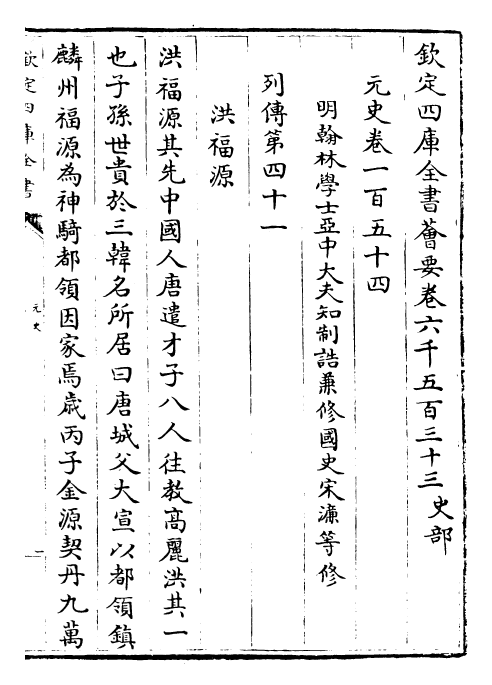 欽定四庫全書薈要卷六千五百三十三 史部
元史卷一百五十四
明翰林學士亞中大夫知制誥兼修國史宋濂等修
列傳第四十一
洪福源
洪福源其先中國人唐遣才子八人往教高麗洪其一
也子孫世貴於三韓名所居曰唐城父大宣以都領鎮
麟州福源為神騎都領因家焉歲丙子金源契丹九萬
欽定四庫全書
元史